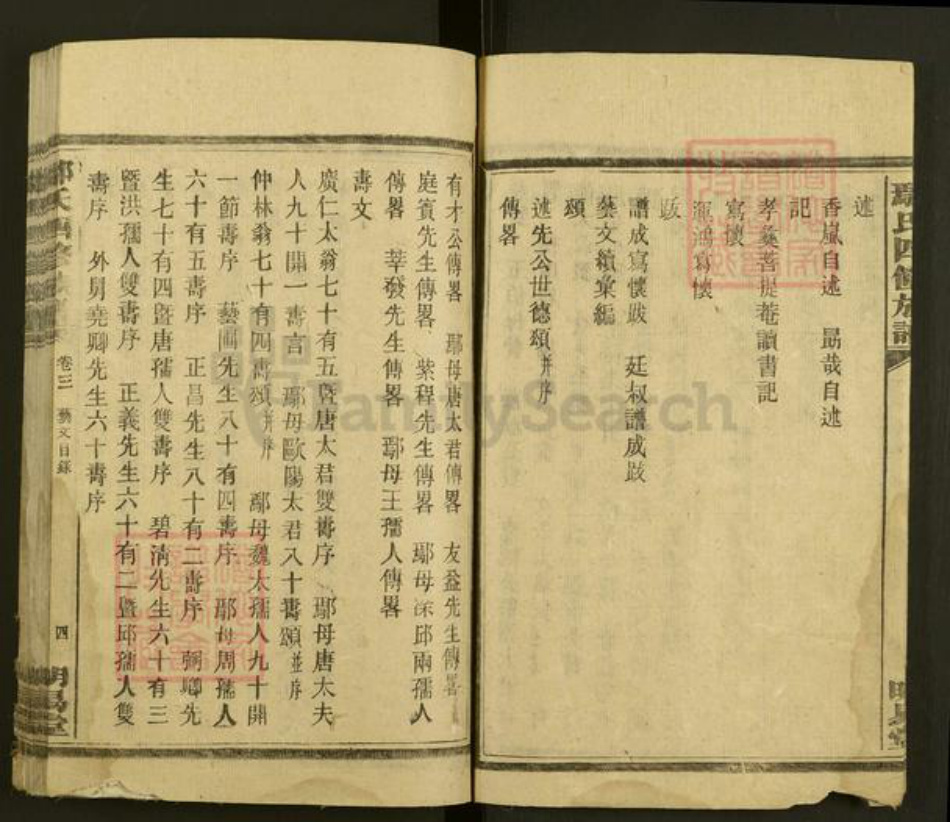 氏四修族譜
述
香嵐自述　勗哉自述
記
孝彝菩提菴讀書記
寫懷
鴻寫懷
跋
譜成寫懷跋　廷叔譜成跋
藝文續彙編
頌
述先公世德頌并序
傳畧
有才公傳畧　鄢母唐太君傳畧　友益先生傳畧
庭賓先生傳畧　紫程先生傳畧　鄢母梁邱兩孺人
傳畧　莘發先生傳畧　鄢母王孺人傳畧
壽文
廣仁太翁七十有五暨唐太君雙壽序　鄢母唐太夫
人九十開一壽言　鄢母歐陽太君八十壽頌並序
仲林翁七十有四壽頌并序　鄢母魏太孺人九十開
一節壽序　藝圃先生八十有四壽序　鄢母周孺人
六十有五壽序　正昌先生八十有二壽序　弼卿先
生七十有四暨唐孺人雙壽序　碧清先生六十有三
暨洪孺人雙壽序　正義先生六十有二暨邱孺人雙
壽序　外舅堯卿先生六十壽序
卷三　藝文目錄　四
FamilySearch